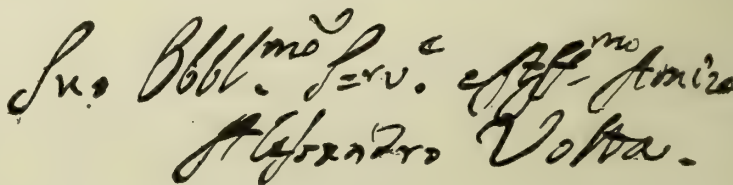 Suo Obbl.mo Serv.e ed Aff.mo Amico
Alessandro Volta.